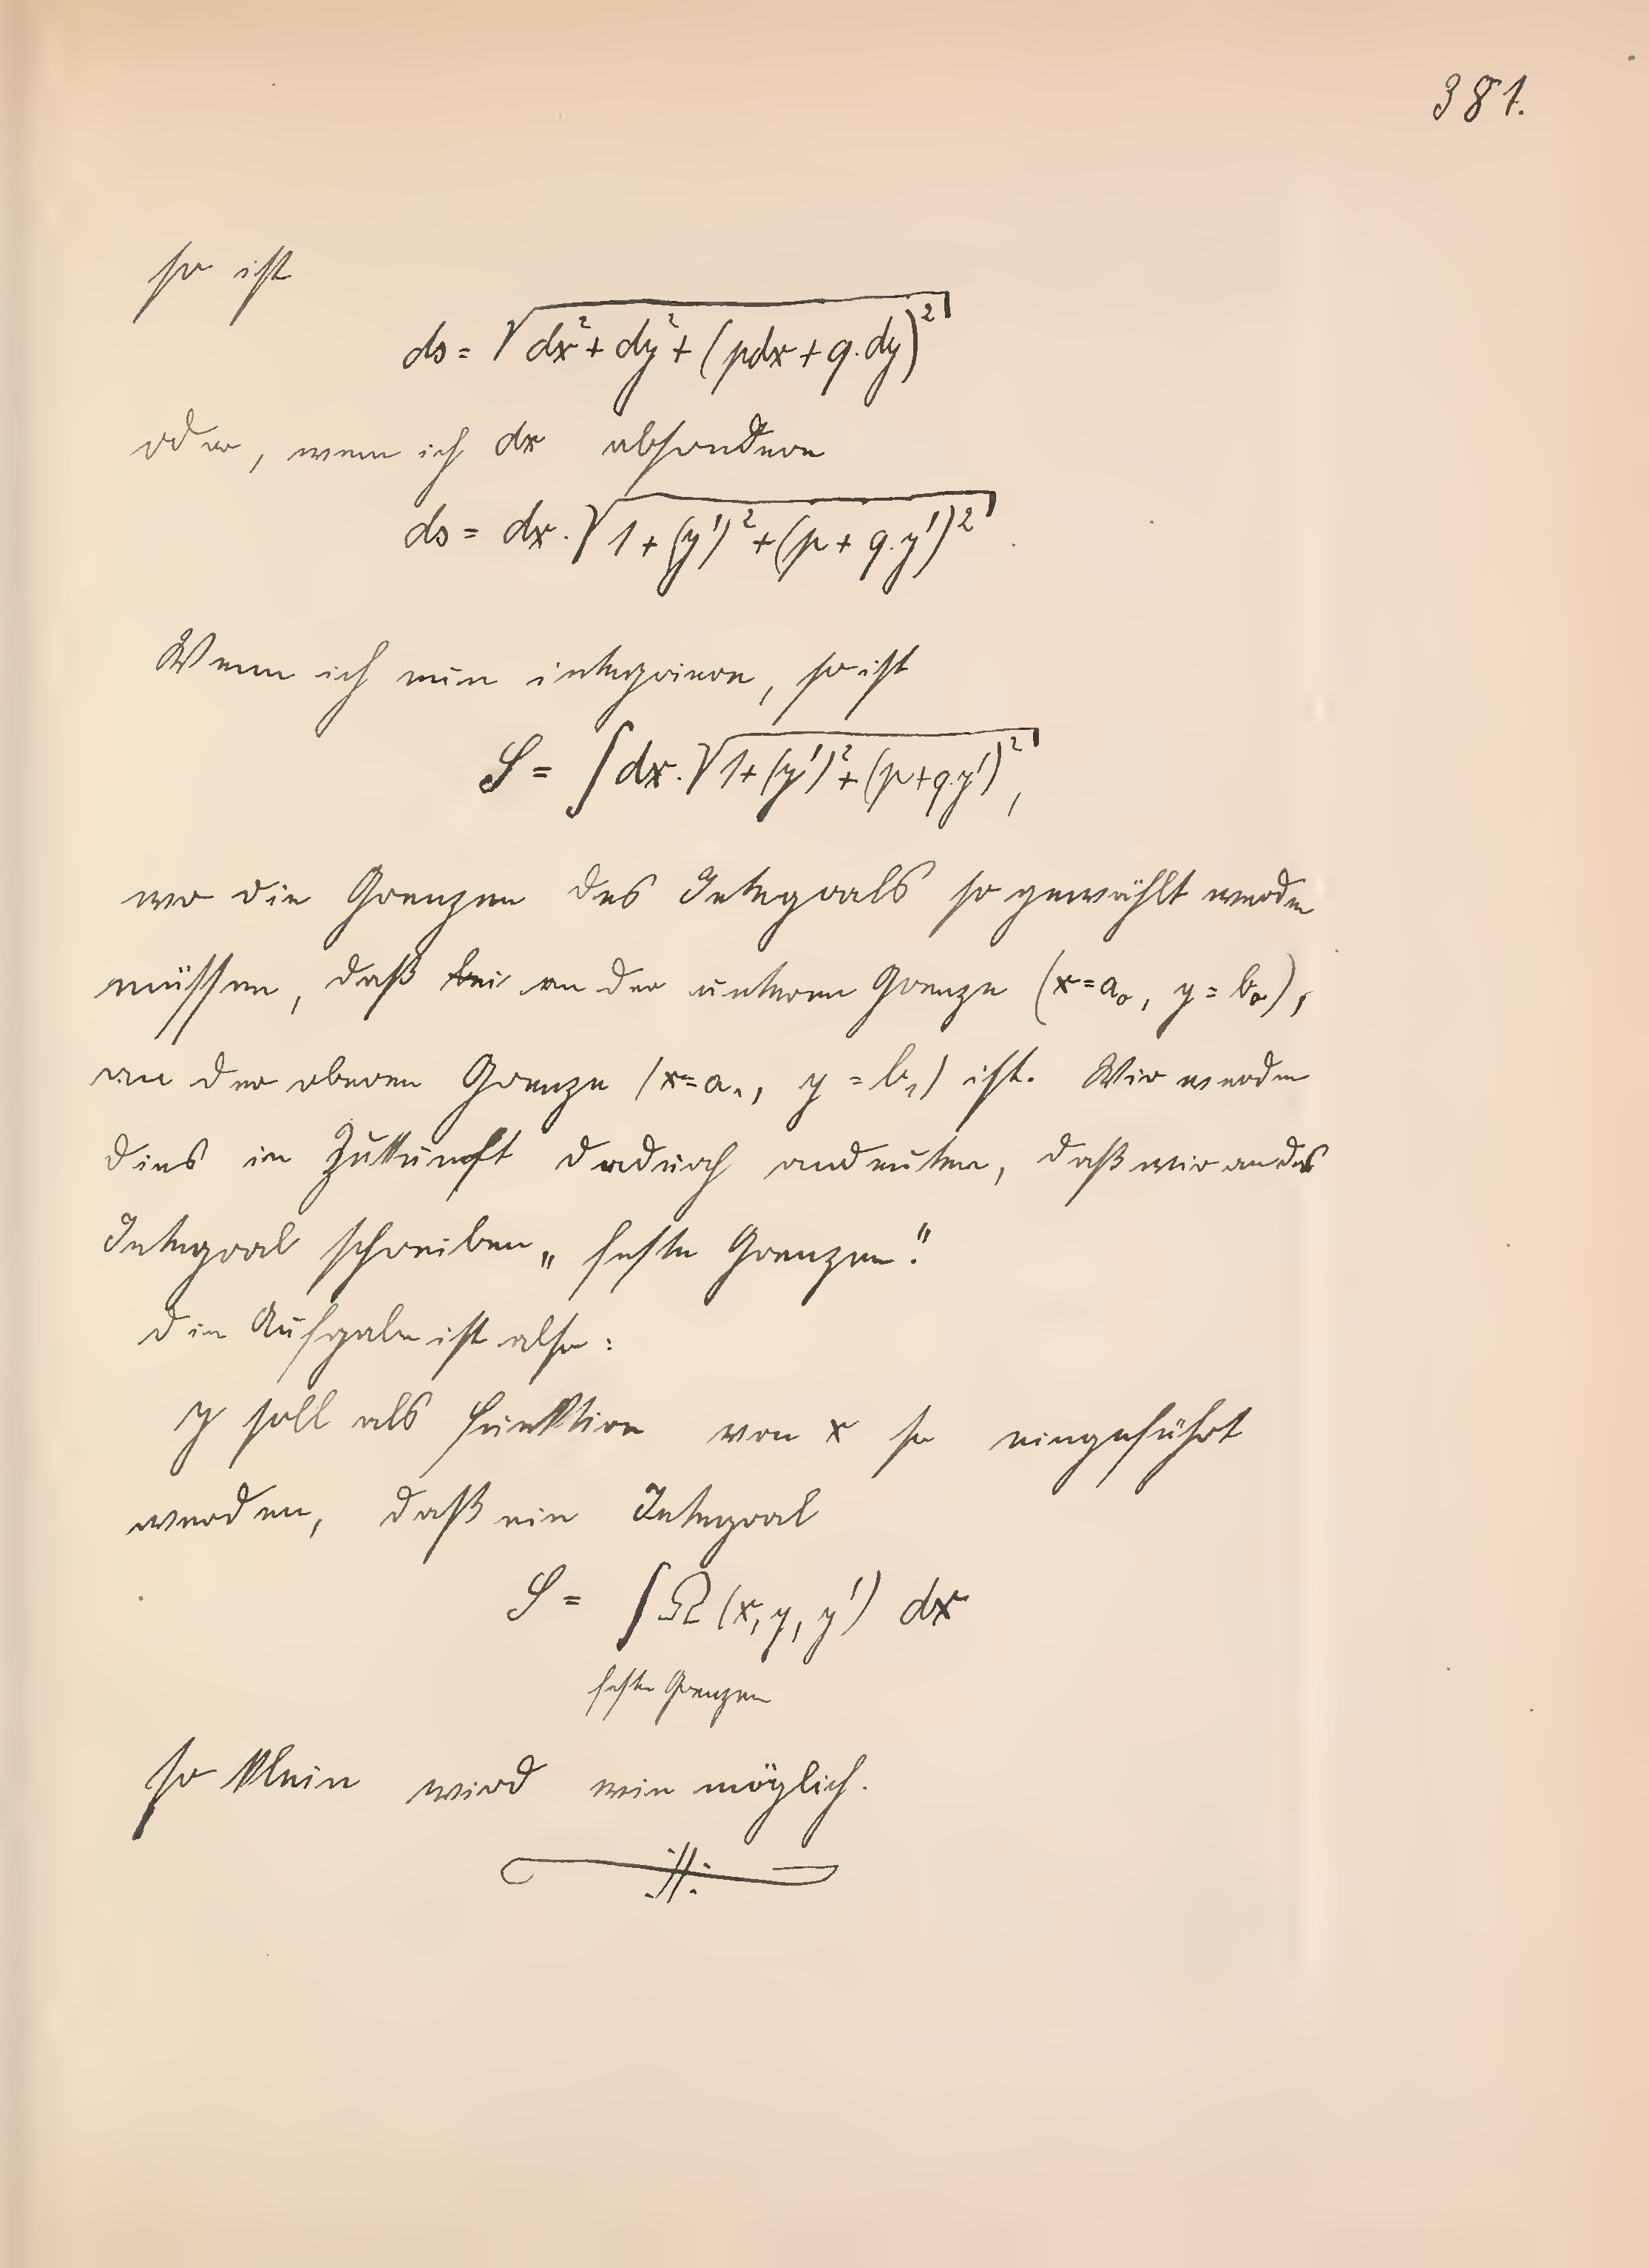 381.
so ist
ds = √(dx² + dy² + (pdx + q·dy)²)
oder, wenn ich dx absondere
ds = dx·√(1 + (y')² + (p + q·y')²)
Wenn ich nun integriere, so ist
S = ∫ dx·√(1 + (y')² + (p + q·y')²),
wo die Grenzen des Integrals so gewählt werden
müssen, daß bei an der unteren Grenze (x = a₀, y = b₀),
an der oberen Grenze (x = a₁, y = b₁) ist. Wir werden
dies in Zukunft dadurch andeuten, daß wir an das
Integral schreiben „feste Grenzen“.
Die Aufgabe ist also:
y soll als Funktion von x so eingeführt
werden, daß ein Integral
S = ∫ Ω (x, y, y') dx
feste Grenzen
so klein wird wie möglich.